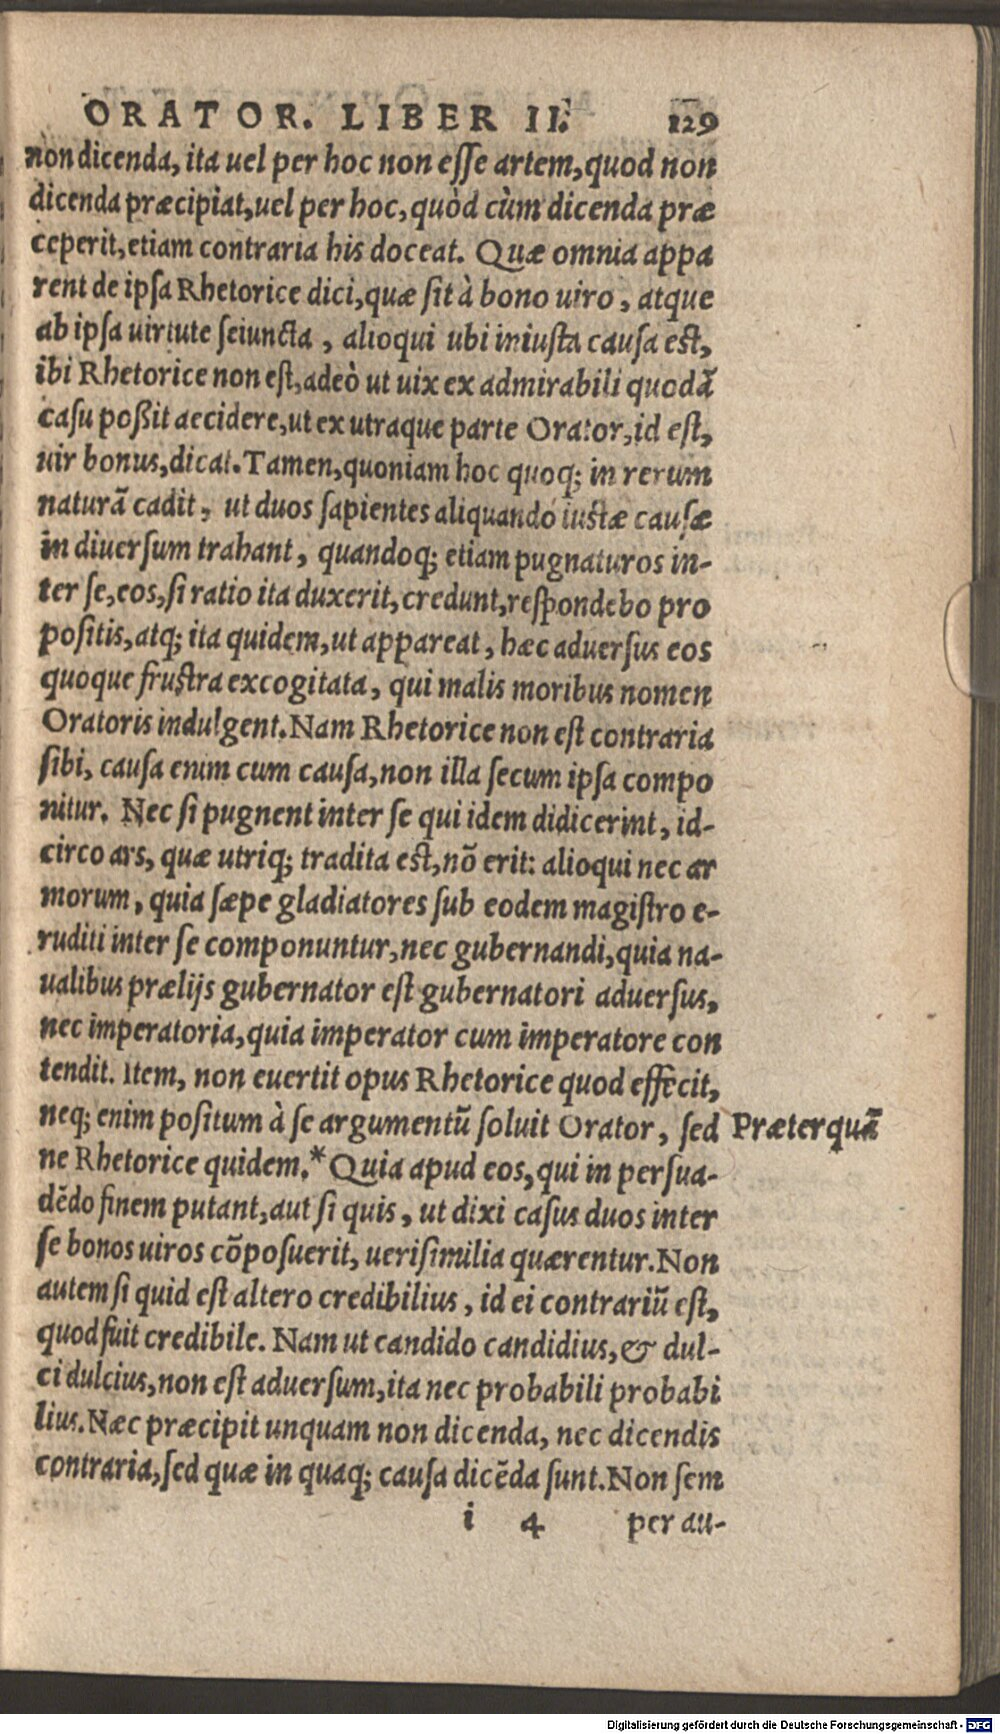 ORATOR. LIBER II. 129
non dicenda, ita uel per hoc non esse artem, quod non
dicenda præcipiat, uel per hoc, quòd cùm dicenda præ
ceperit, etiam contraria his doceat. Quæ omnia appa
rent de ipsa Rhetorice dici, quæ sit à bono uiro, atque
ab ipsa uirtute seiuncta, alioqui ubi iniusta causa est,
ibi Rhetorice non est, adeò ut uix ex admirabili quodã
casu poßit accidere, ut ex utraque parte Orator, id est,
uir bonus, dicat. Tamen, quoniam hoc quoq; in rerum
naturã cadit, ut duos sapientes aliquando iustæ causæ
in diuersum trahant, quandoq; etiam pugnaturos in-
ter se, eos, si ratio ita duxerit, credunt, respondebo pro
positis, atq; ita quidem, ut appareat, hæc aduersus eos
quoque frustra excogitata, qui malis moribus nomen
Oratoris indulgent. Nam Rhetorice non est contraria
sibi, causa enim cum causa, non illa secum ipsa compo
nitur. Nec si pugnent inter se qui idem didicerint, id-
circo ars, quæ utriq; tradita est, nõ erit: alioqui nec ar
morum, quia sæpe gladiatores sub eodem magistro e-
ruditi inter se componuntur, nec gubernandi, quia na-
ualibus prælijs gubernator est gubernatori aduersus,
nec imperatoria, quia imperator cum imperatore con
tendit. Item, non euertit opus Rhetorice quod effecit,
neq; enim positum à se argumentũ soluit Orator, sed Præterquã
ne Rhetorice quidem.* Quia apud eos, qui in persua-
dẽdo finem putant, aut si quis, ut dixi casus duos inter
se bonos uiros cõposuerit, uerisimilia quærentur. Non
autem si quid est altero credibilius, id ei contrariũ est,
quod fuit credibile. Nam ut candido candidius, & dul-
ci dulcius, non est aduersum, ita nec probabili probabi
lius. Næc præcipit unquam non dicenda, nec dicendis
contraria, sed quæ in quaq; causa dicẽda sunt. Non sem
i 4 per au-
Digitalisierung gefördert durch die Deutsche Forschungsgemeinschaft - DFG